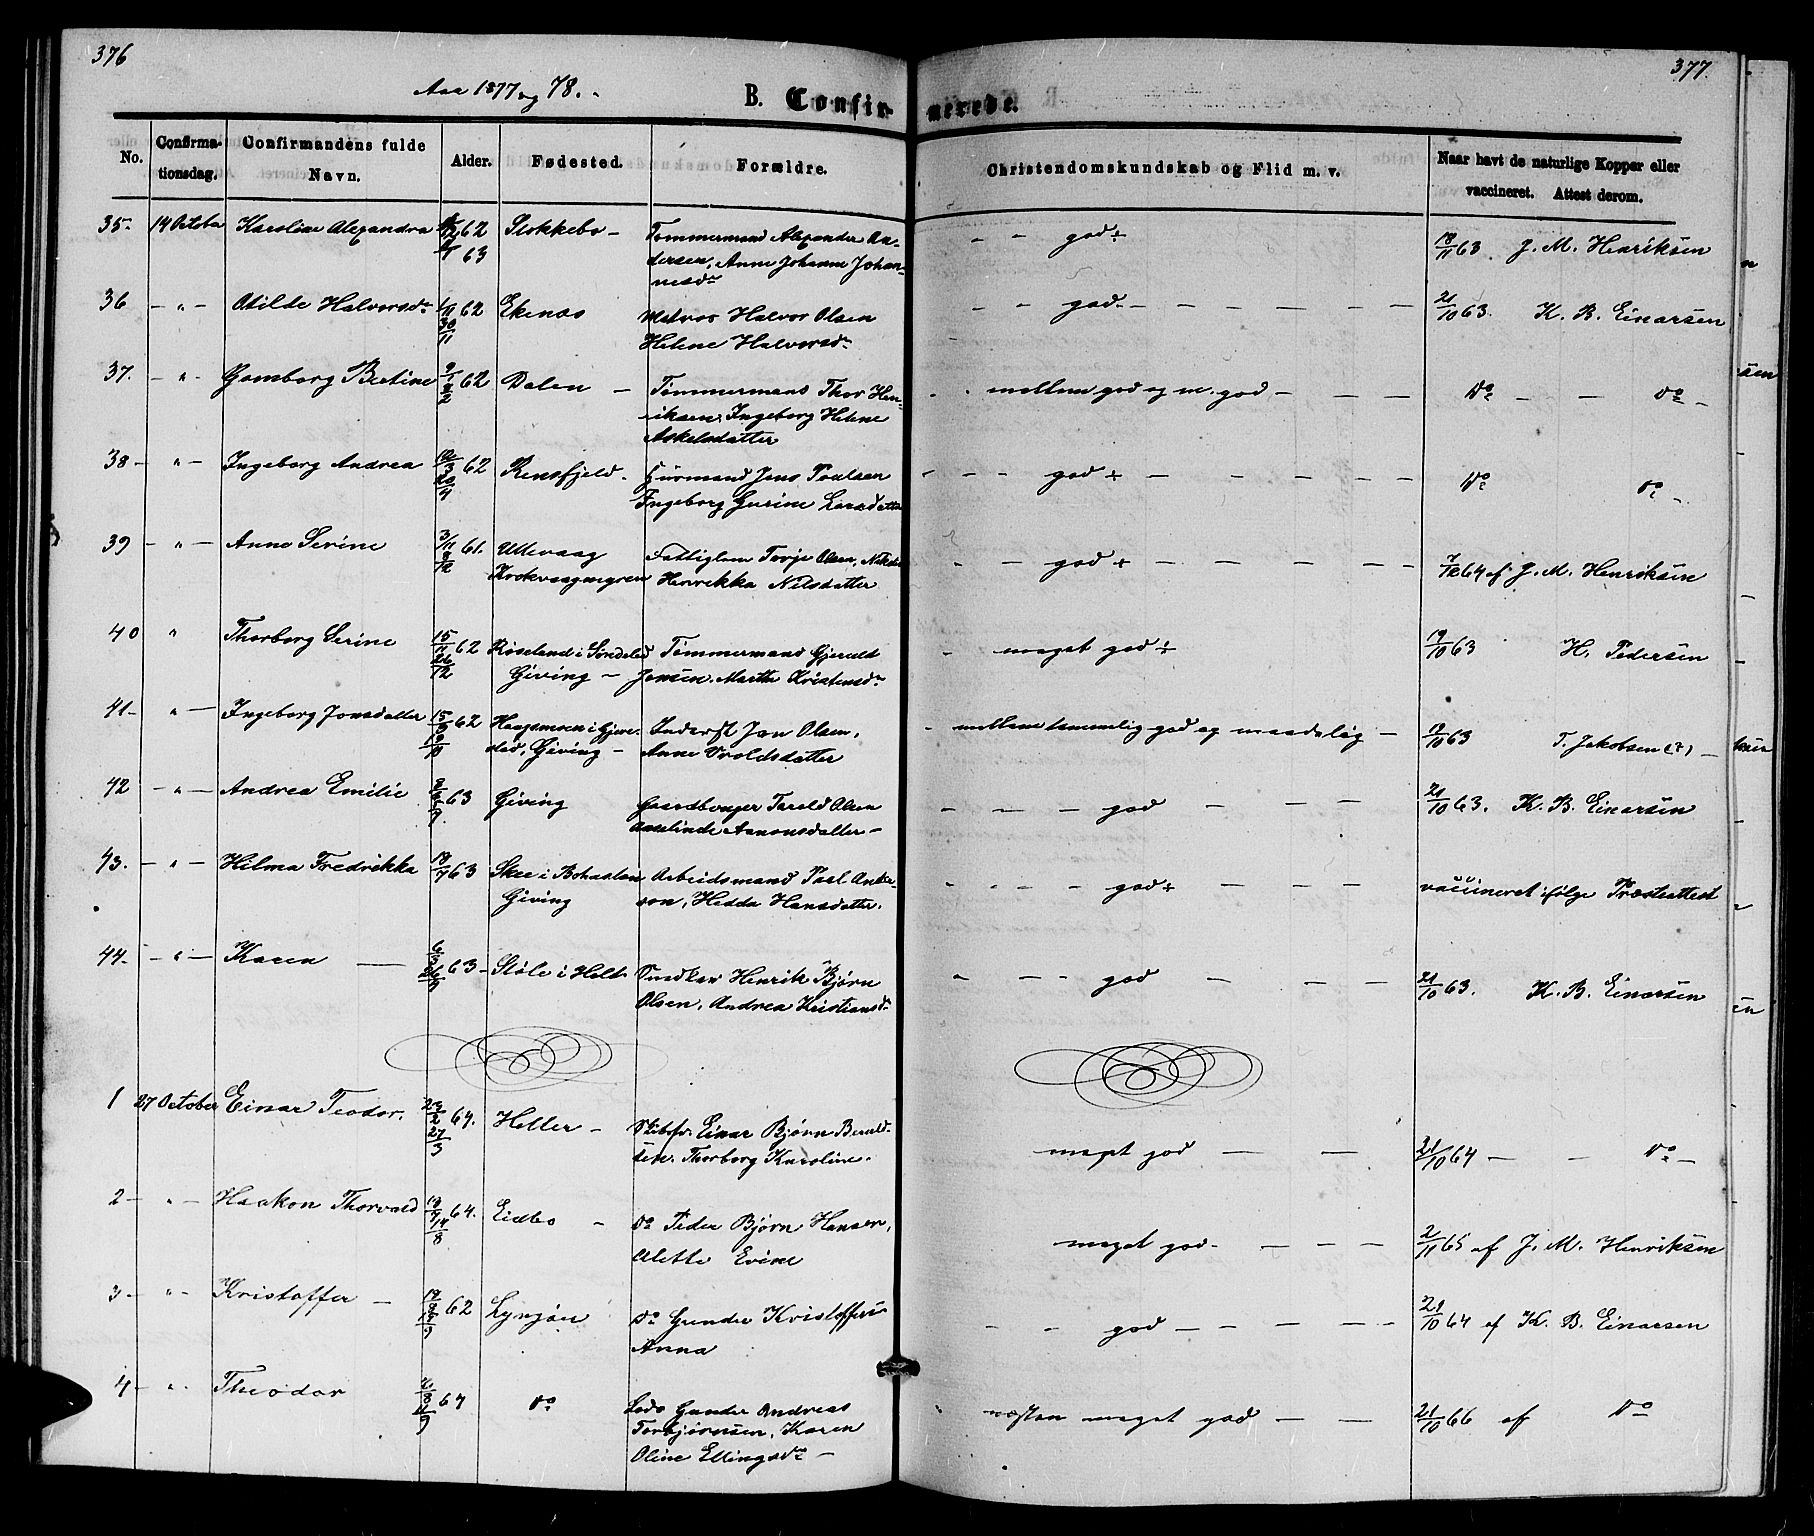 376
377.
Aar 1877 og 78.
B. Confir-
merede.
No.
Confirma-
tionsdag.
Confirmandens fulde
Navn.
Alder.
Fødested.
Forældre.
Christendomskundskab og Flid m. v.
Naar havt de naturlige Kopper eller
vaccineret. Attest derom.
35- 14 October Karoline Alexandra 62 Stokkebo - Tømmermand Alexander An-
63 dersen, Anne Johanne Johan-
nesdr
- - god + 18/11 63. J. M. Henriksen
36 - " - Otilde Halvorsdr 62 Ekenæs Matros Halvor Olsen
30/11 Helene Halvorsdr
- - god - - - - - - 21/10 63. K. B. Einarsen
37. - " - Gomborg Bertine 62 Dalen - Tømmermand Thor Hen-
riksen, Ingeborg Helene
Askelsdatter
mellem god og m. god - - - - Do - - Do -
38 - " - Ingeborg Andrea 62 Rensfjeld. Huusmand Jens Poulsen
20/4 Ingeborg Gurine Larsdatter
- - - god + - - - - - Do Do -
39 - " - Anne Serine 3/11 61. Uttevaag Fattiglem Torje Olsen,
Henrikka Nilsdatter
- - god + - - - - - 64 af J. M. Henriksen
40 " Thorborg Serine 15/11 62 Røseland i Søndeled Tømmermand Gjeruld
26/12 Giving - Jensen. Marthe Kristensdr
- meget god + 19/10 63 H. Pedersen
41- " - Ingeborg Jonsdatter 62 Inderst Jon Olsen,
Giving - Anne Oroldsdatter
- mellem temmelig god og maadelig - 63 T. Jakobsen (?) -
42 - " - Andrea Emilie 63 Giving Gaardbruger Tarald Olsen
Aaselinde Aanonsdatter -
- - - god - - - 21/10 63. K. B. Einarsen
43. - " - Hilma Fredrikka 18/7 63 Skee i Bohuslen Arbeidsmand Karl Anker-
Giving son, Hedda Hansdatter.
- - - god + - - - - vaccineret ifølge Præsteattest
44- - " - Karen - 63 - Støle i Holt Henrik Bjørn
Olsen, Andrea Kristiansdr
- - god - - - - 21/10 63. K. B. Einarsen
1 27 October Einar Teodor. 64. Heller - Skibsfr. Einar Bjørn Berulf-
27/3 sen. Thorborg Karoline.
meget god - - 21/10 64 - - Do -
2 - " - Haakon Thorvald 64. Eidbo - Do Peder Bjørn Hansen,
14/8 Alette Evine
meget god - - - - 2/11 65 af J. M. Henriksen
3 - " - Kristoffer - 62 Lyngøer Do Gunder Kristoffersen
Anna
- - god - - - - - - 21/10 64 af K. B. Einarsen
4 - " - Theodor 64 Do Lods Gunder Andreas
Torbjørnsen, Karen
Oline Ellingsdr -
næsten meget god - - 21/10 66 af Do